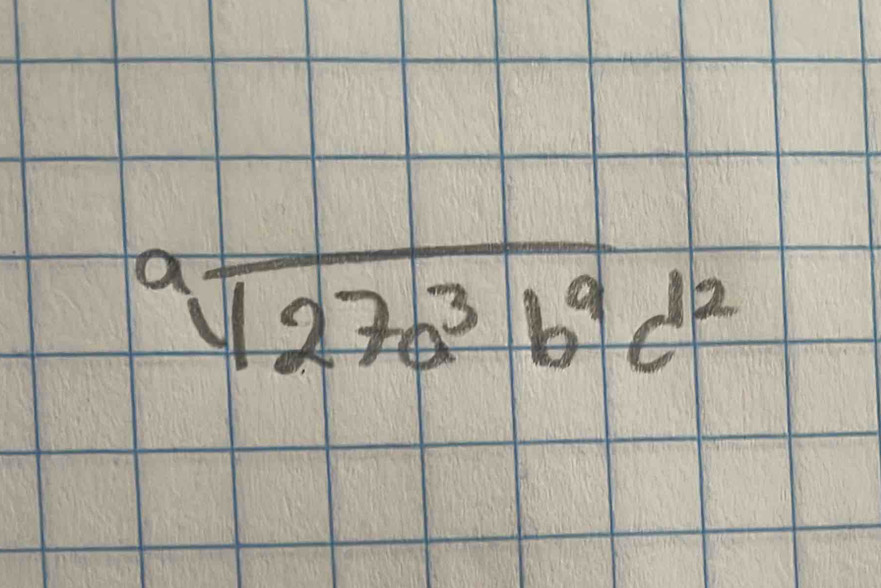 $\sqrt[a]{27a^3 b^9} d^2$